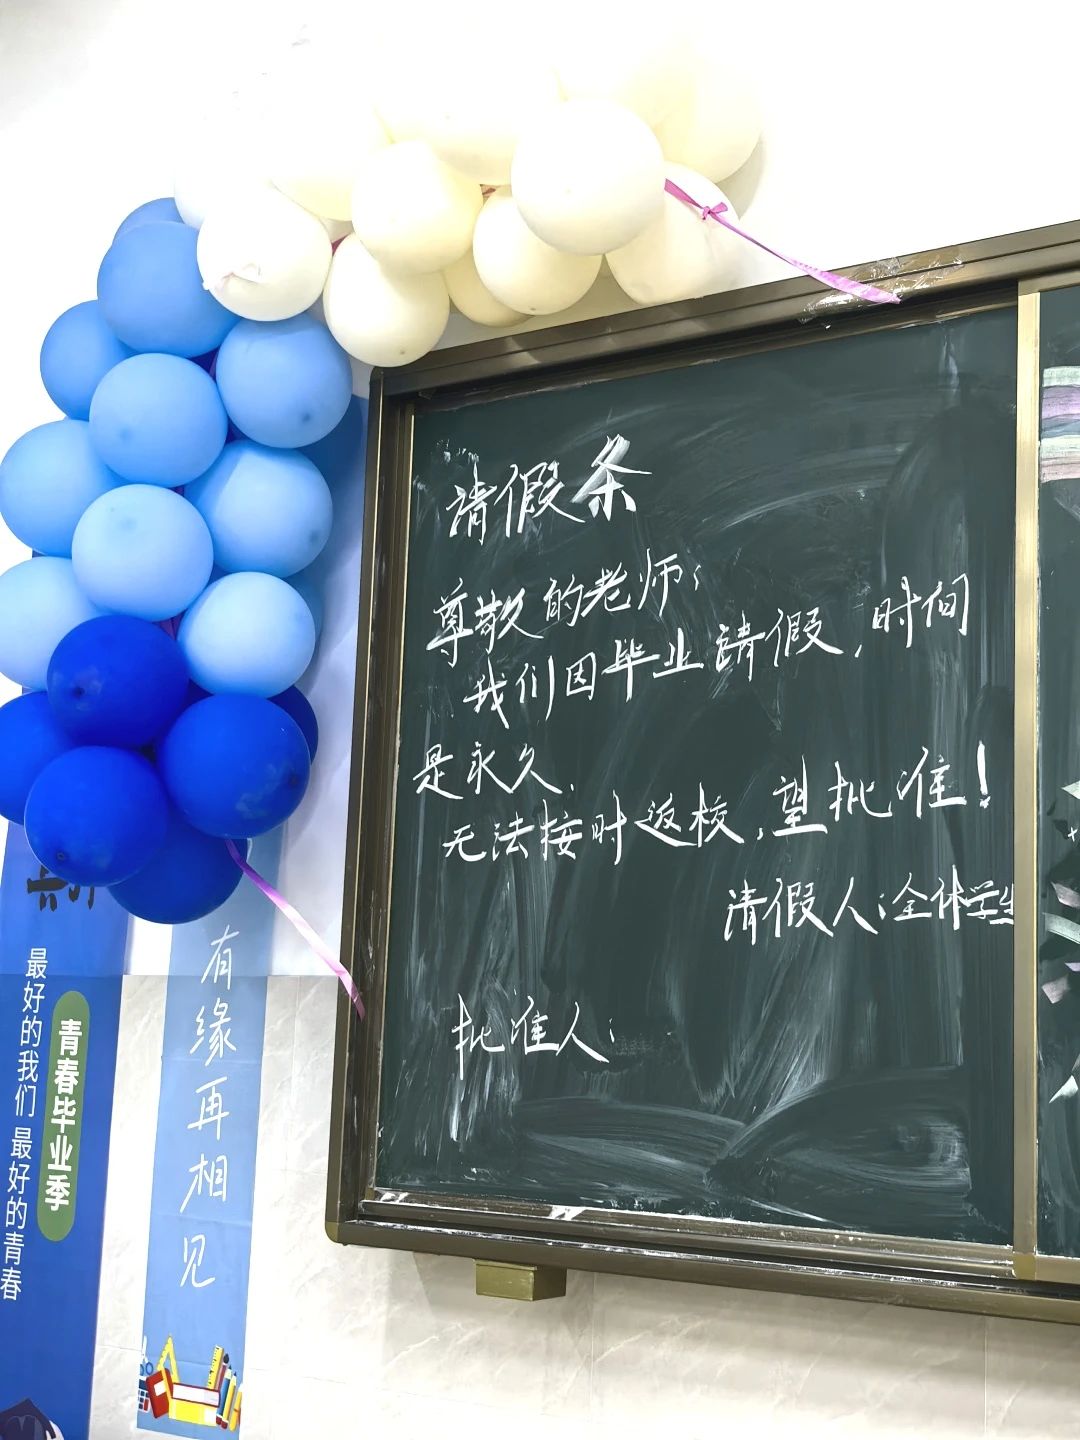 请假条
尊敬的老师:
我们因毕业請假,时间
是永久.
无法按时返校,望批准!
请假人:全体学生
批准人:
有缘再相见
青春毕业季
最好的我们 最好的青春